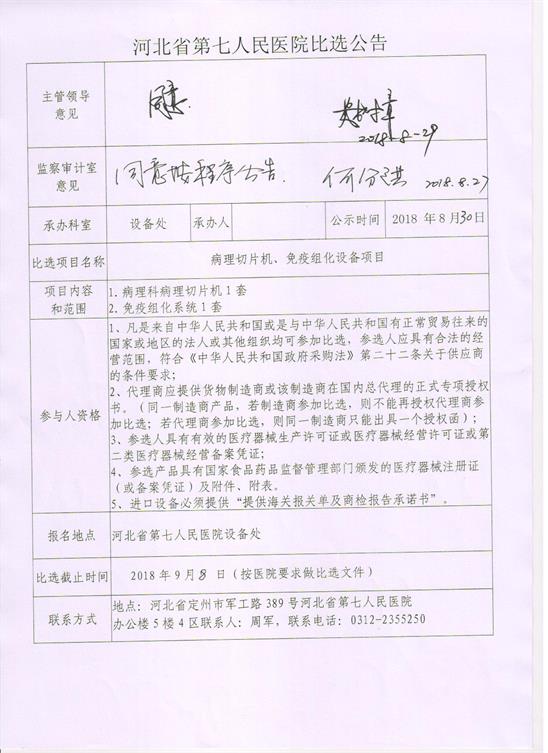 河北省第七人民医院比选公告
主管领导
意见
同意.
2018-8-29
监察审计室
意见
同意按程序公告.
2018.8.27
承办科室
设备处
承办人
公示时间
2018 年8月30日
比选项目名称
病理切片机、免疫组化设备项目
项目内容
和范围
1.病理科病理切片机1套
2.免疫组化系统1套
参与人资格
1、凡是来自中华人民共和国或是与中华人民共和国有正常贸易往来的
国家或地区的法人或其他组织均可参加比选，参选人应具有合法的经
营范围，符合《中华人民共和国政府采购法》第二十二条关于供应商
的条件要求；
2、代理商应提供货物制造商或该制造商在国内总代理的正式专项授权
书。（同一制造商产品，若制造商参加比选，则不能再授权代理商参
加比选；若代理商参加比选，则同一制造商只能出具一个授权函）；
3、参选人具有有效的医疗器械生产许可证或医疗器械经营许可证或第
二类医疗器械经营备案凭证；
4、参选产品具有国家食品药品监督管理部门颁发的医疗器械注册证
（或备案凭证）及附件、附表。
5、进口设备必须提供“提供海关报关单及商检报告承诺书”。
报名地点
河北省第七人民医院设备处
比选截止时间
2018年9月8日（按医院要求做比选文件）
联系方式
地点：河北省定州市军工路389号河北省第七人民医院
办公楼5楼4区联系人：周军，联系电话：0312-2355250